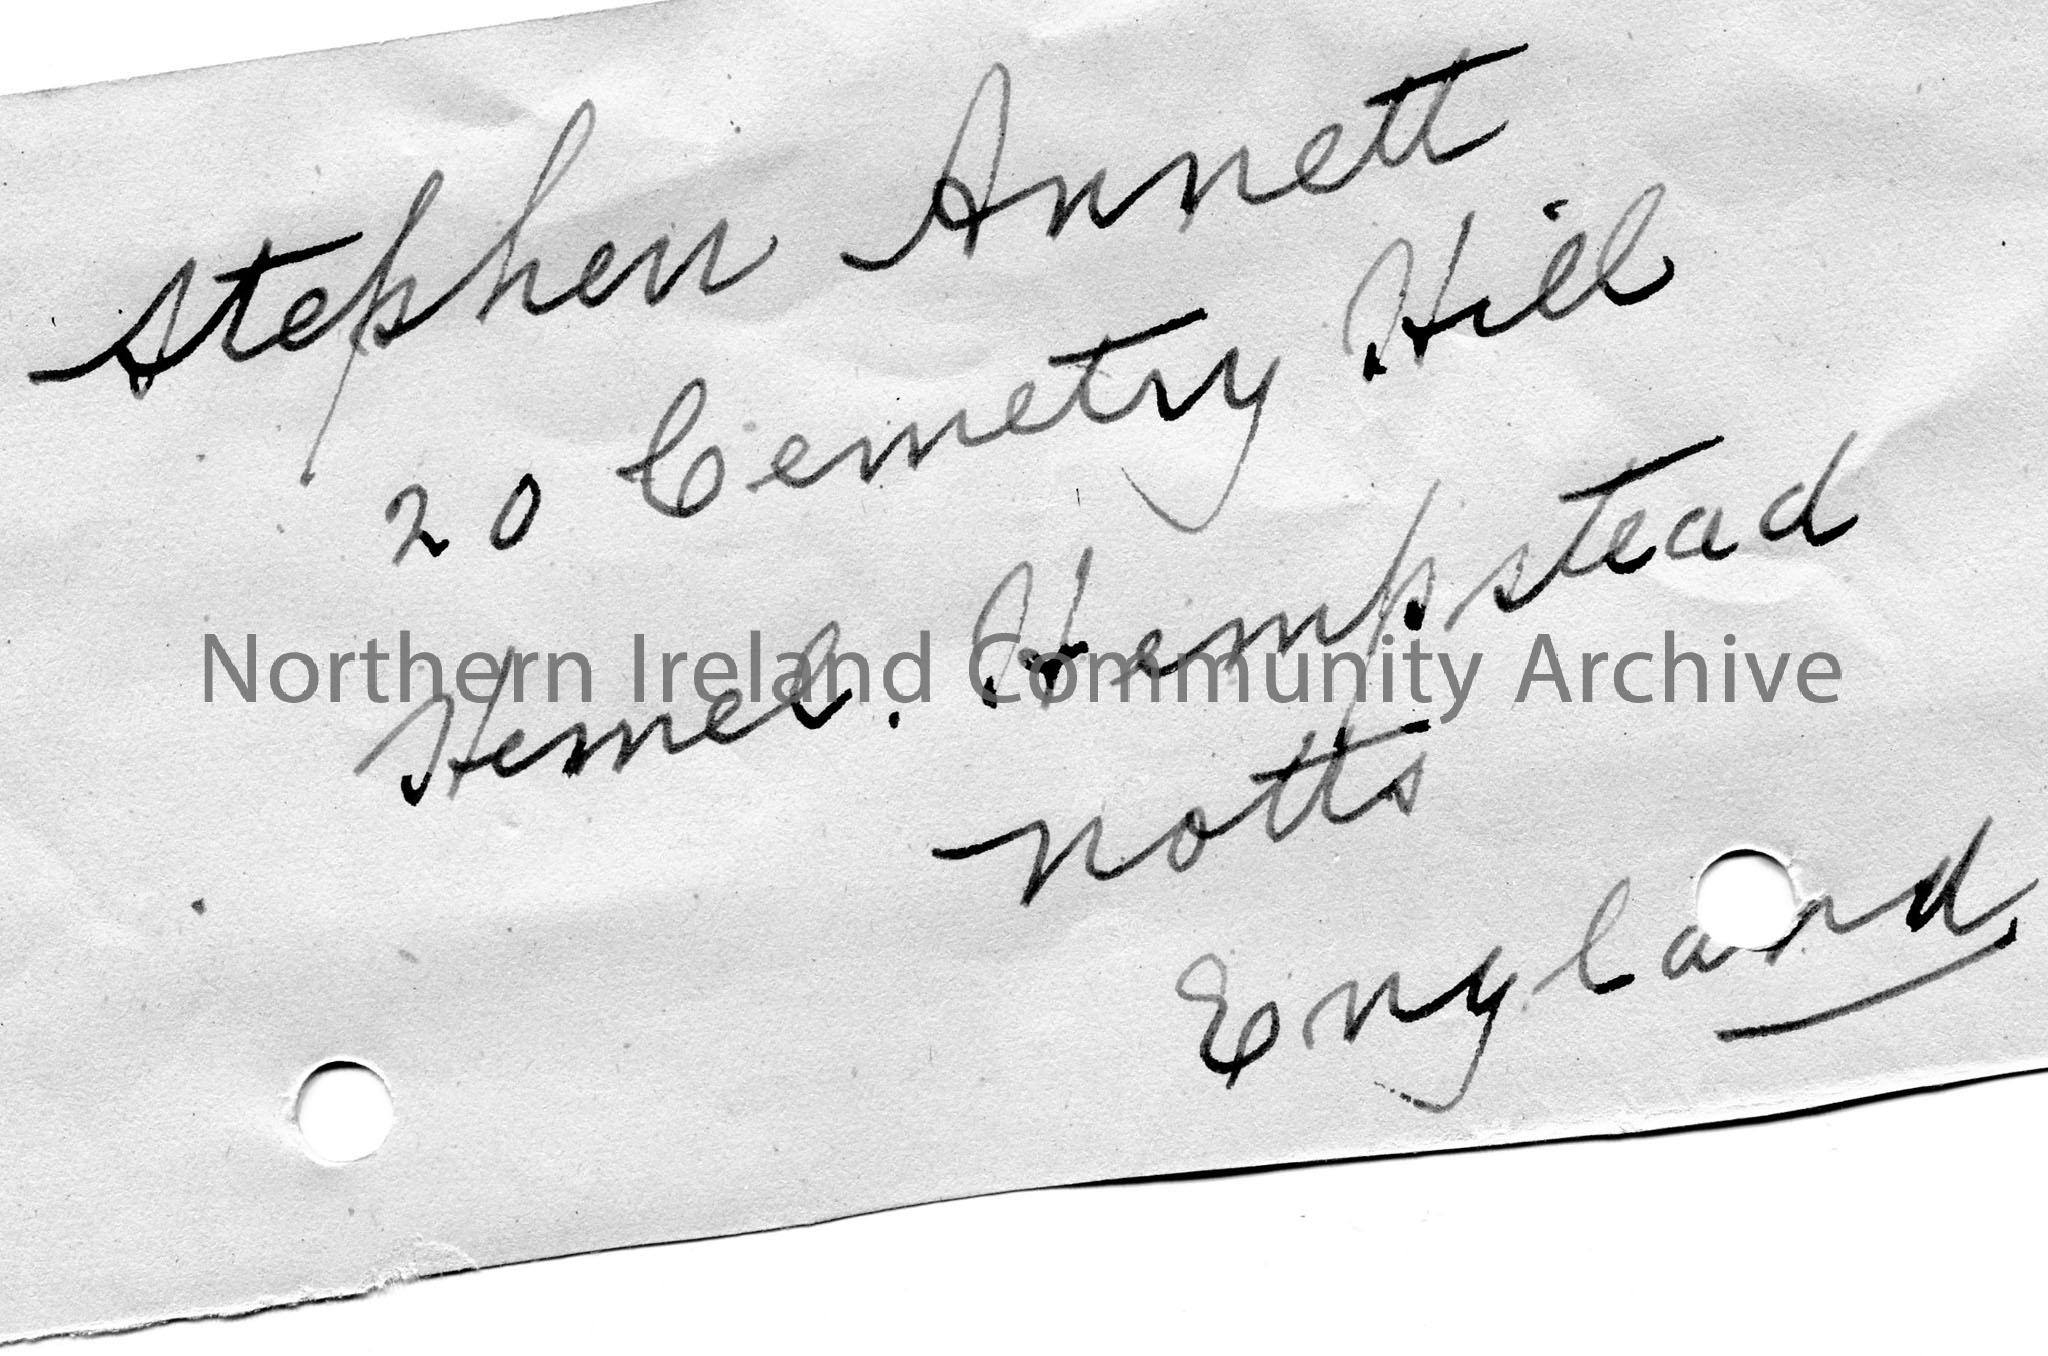 Stephen Annett
20 Cemetry Hill
Hemel. Hempstead
Northern Ireland Community Archive
Notts
England